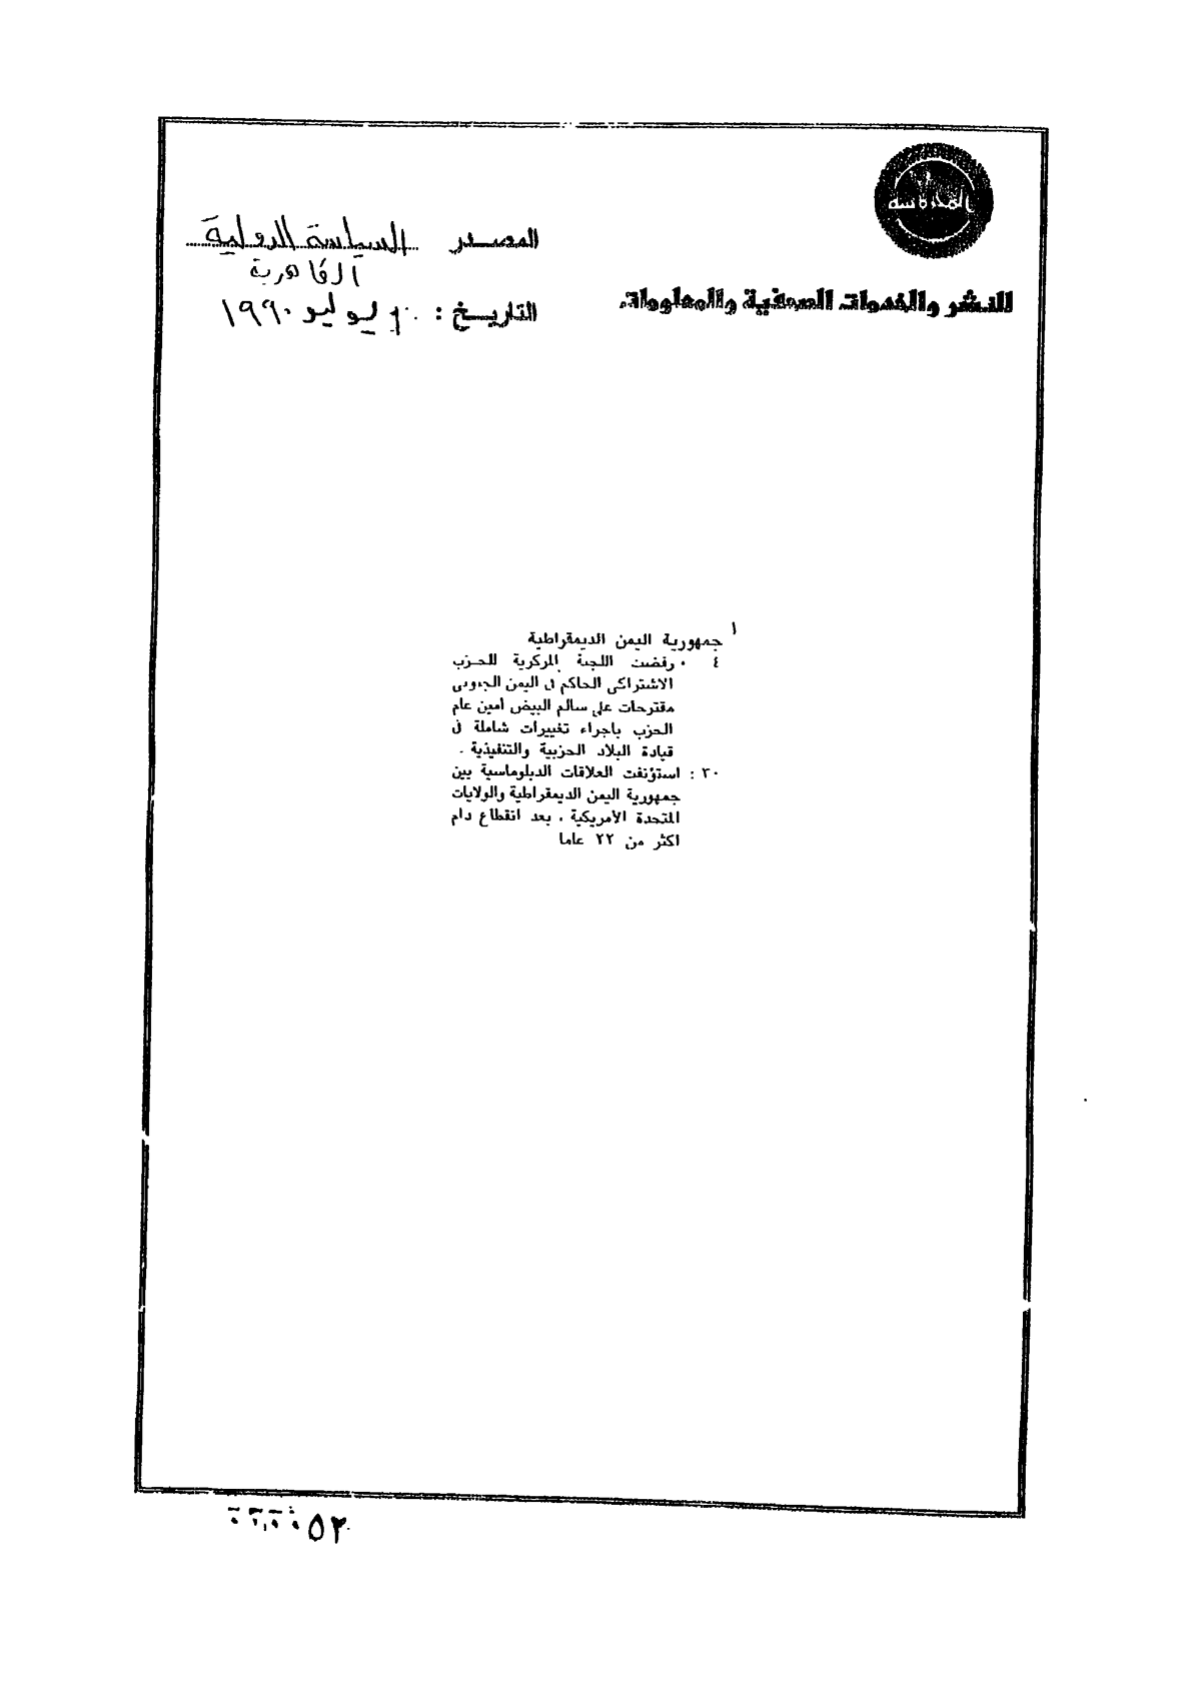 المحروسة
للنشر والخدمات الصحفية والمعلومات
المصدر السياسة الدولية
القاهرية
التاريخ : يوليو ١٩٩٠
١
جمهورية اليمن الديمقراطية
٤ · رفضت اللجنة المركزية للحزب
الاشتراكى الحاكم فى اليمن الجنوبى
مقترحات على سالم البيض أمين عام
الحزب باجراء تغييرات شاملة فى
قيادة البلاد الحزبية والتنفيذية .
٣٠ : استؤنفت العلاقات الدبلوماسية بين
جمهورية اليمن الديمقراطية والولايات
المتحدة الأمريكية ، بعد انقطاع دام
اكثر من ٢٢ عاما